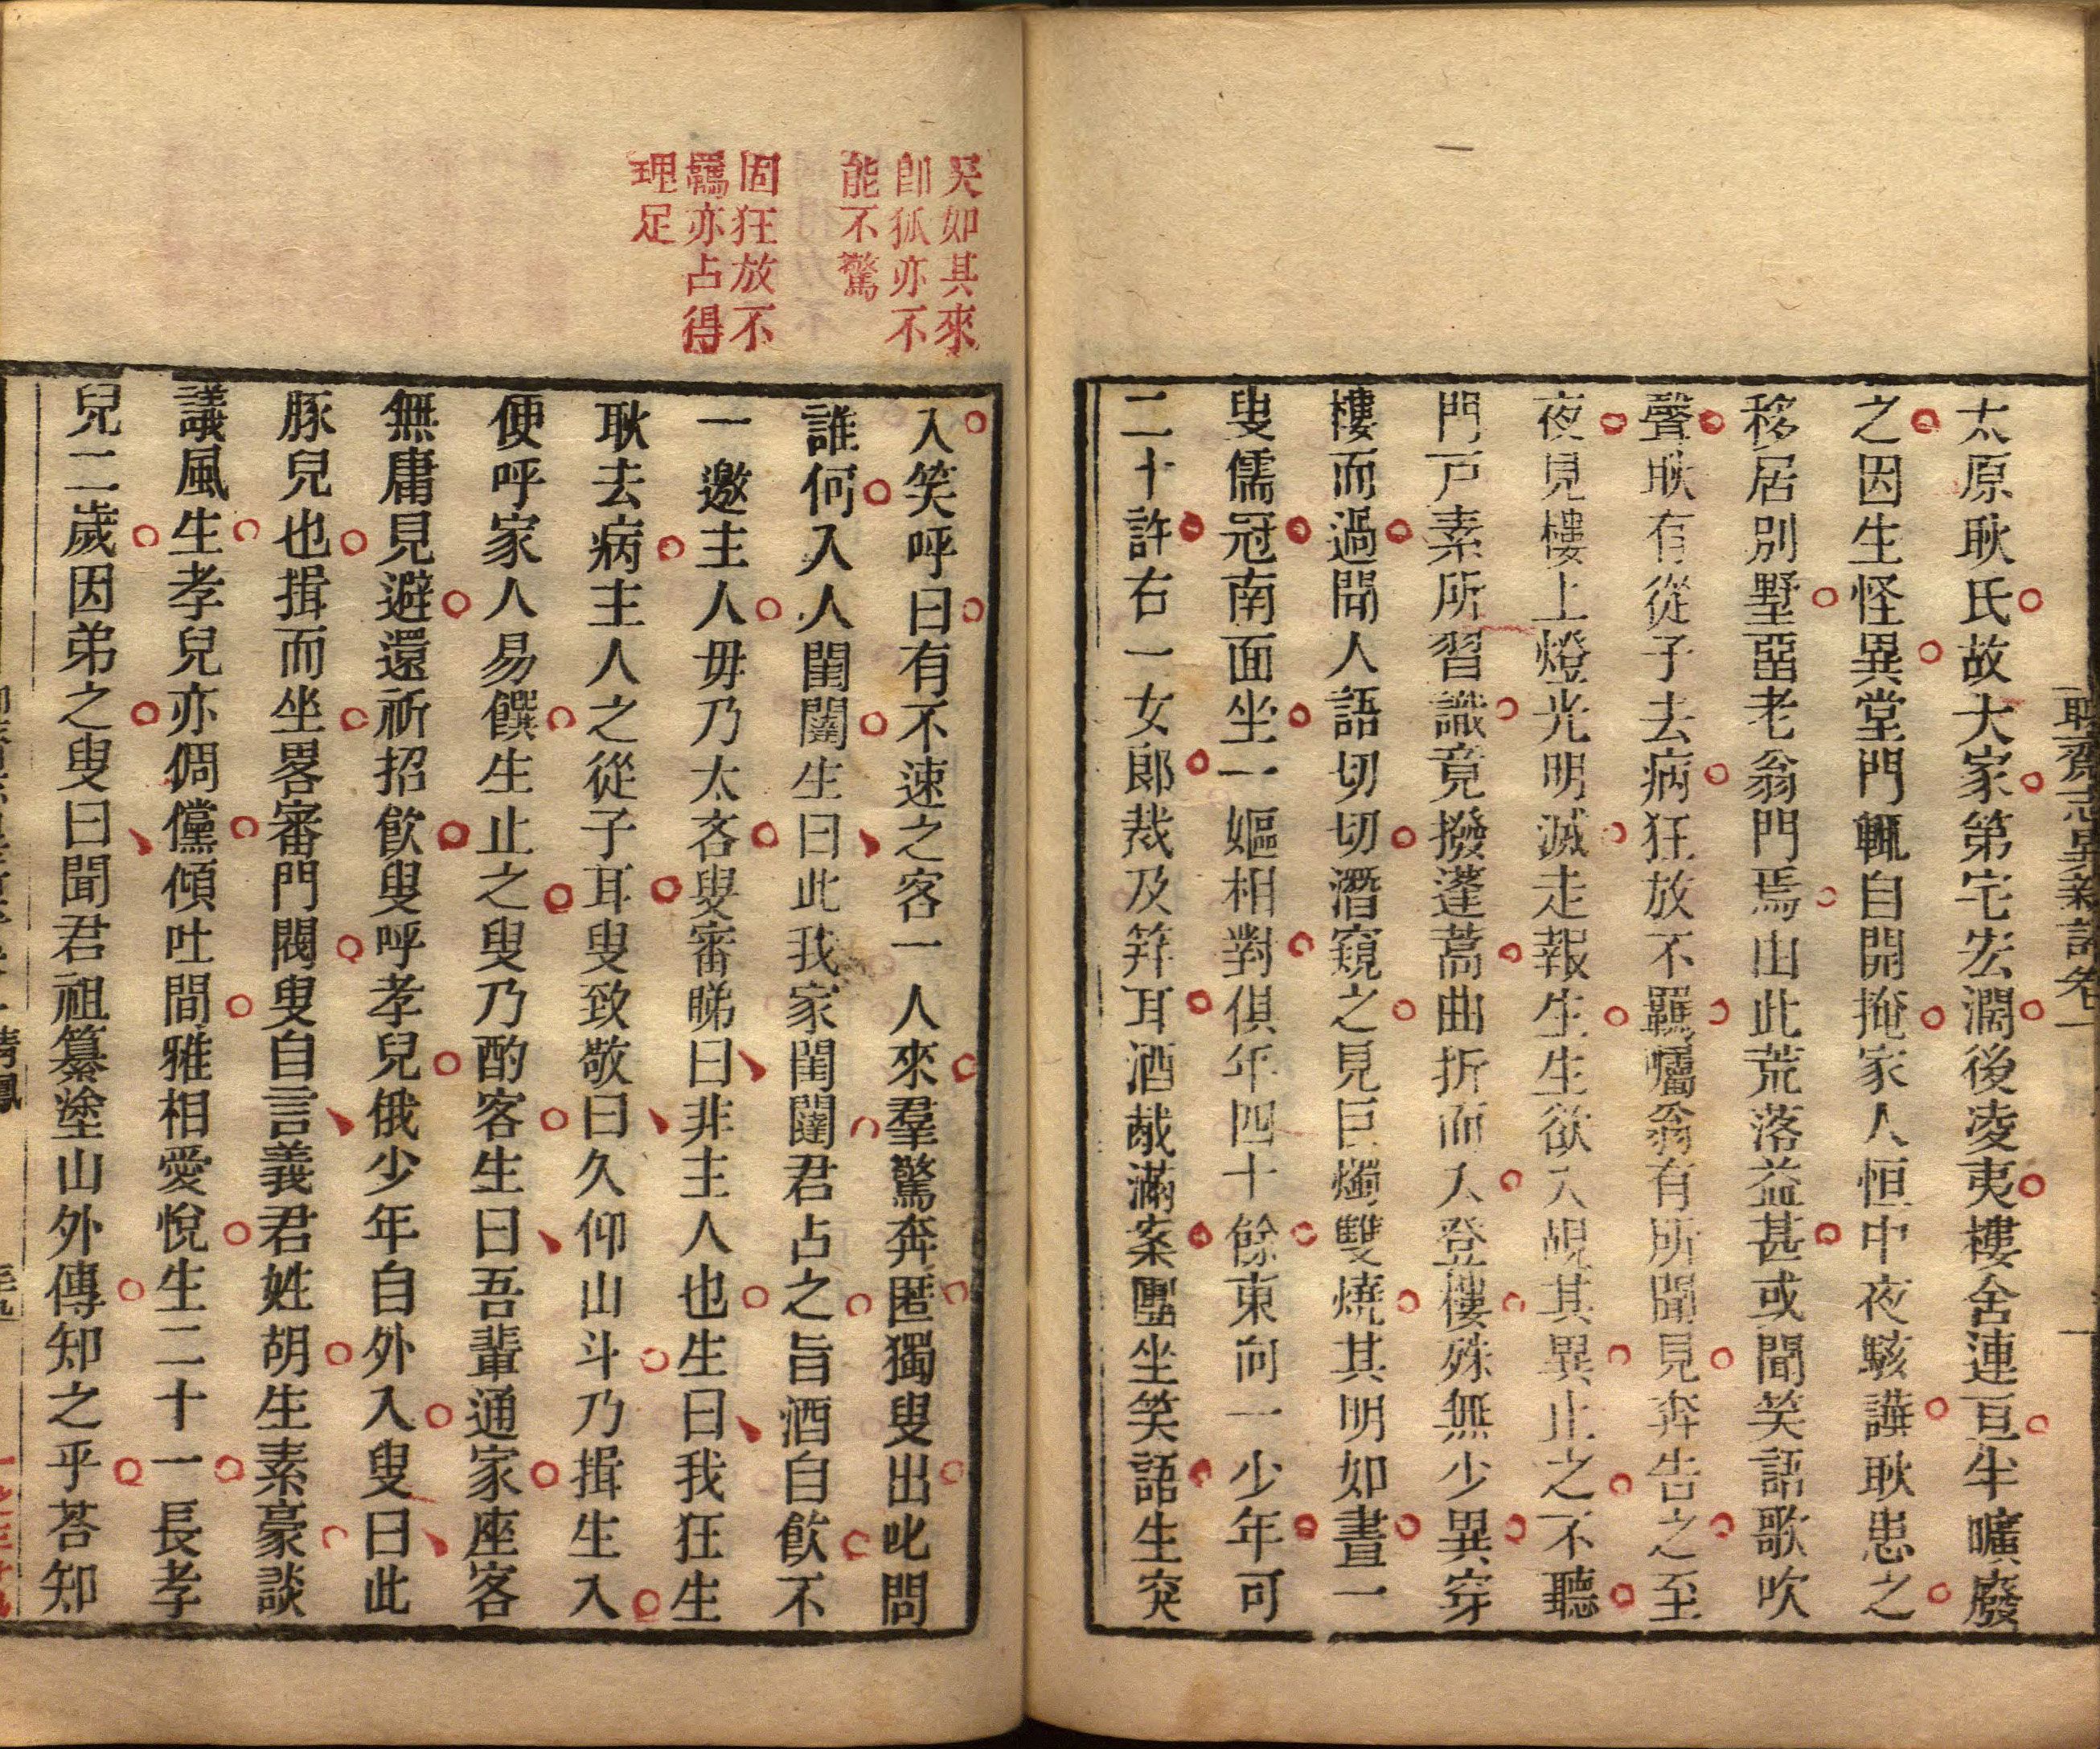 聊齋志異新評卷一
太原耿氏故大家第宅宏濶後凌夷樓舍連亘半曠廢
之因生怪異堂門輒自開掩家人恒中夜駭譁耿患之
移居別墅留老翁門焉由此荒落益甚或聞笑語歌吹
聲耿有從子去病狂放不羈囑翁有所聞見奔告之至
夜見樓上燈光明滅走報生生欲入覘其異止之不聽
門戸素所習識竟撥蓬蒿曲折而入登樓殊無少異穿
樓而過聞人語切切潛窺之見巨燭雙燒其明如晝一
叟儒冠南面坐一嫗相對俱年四十餘東向一少年可
二十許右一女郎裁及笄耳酒胾滿案團坐笑語生突
吳如其來
卽狐亦不
能不驚
固狂放不
羈亦占得
理足
入笑呼曰有不速之客一人來羣驚奔匿獨叟出叱問
誰何入人閨闥生曰此我家閨闥君占之旨酒自飮不
一邀主人毋乃太吝叟審睇曰非主人也生曰我狂生
耿去病主人之從子耳叟致敬曰久仰山斗乃揖生入
便呼家人易饌生止之叟乃酌客生曰吾輩通家座客
無庸見避還祈招飮叟呼孝兒俄少年自外入叟曰此
豚兒也揖而坐畧審門閥叟自言義君姓胡生素豪談
議風生孝兒亦倜儻傾吐間雅相愛悅生二十一長孝
兒二歲因弟之叟曰聞君祖纂塗山外傳知之乎荅知
青鳳